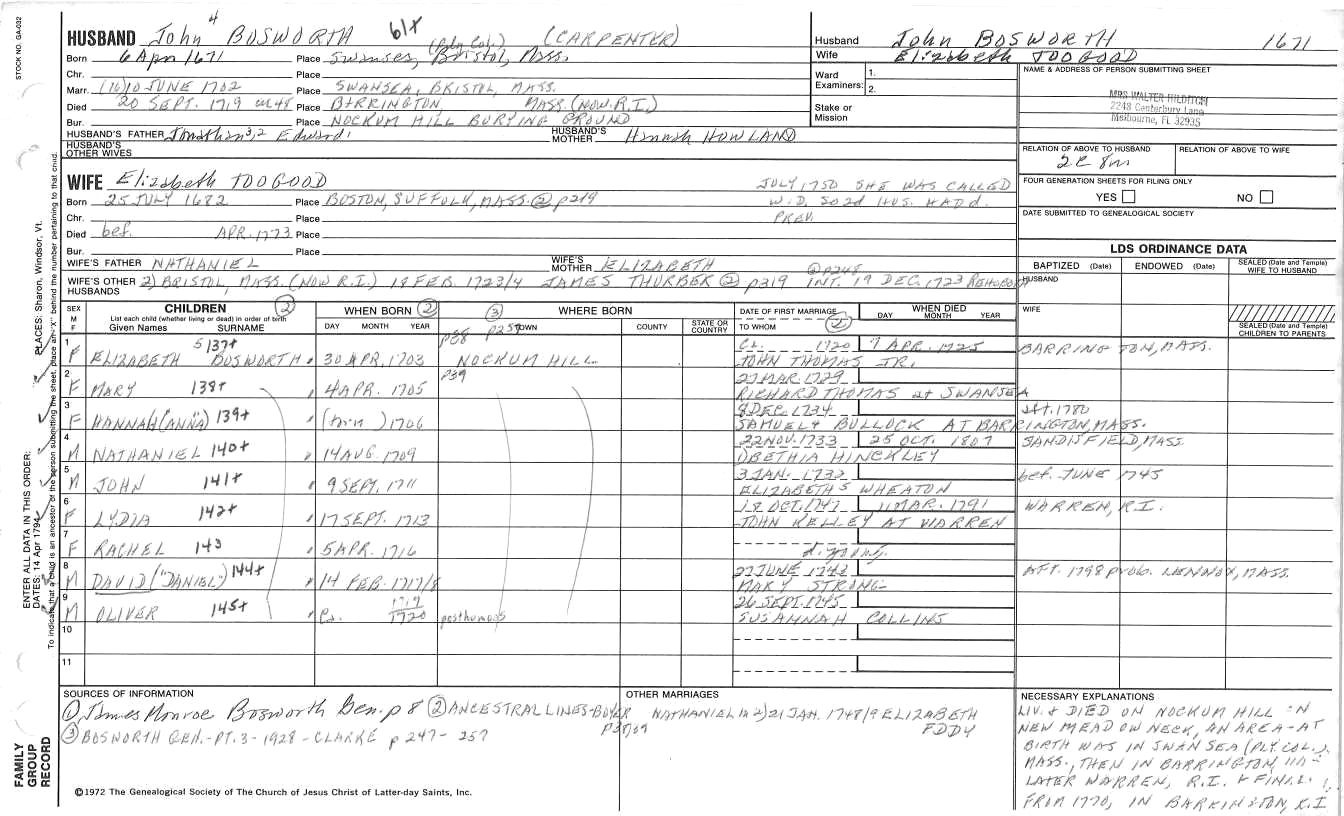 STOCK NO. GA-032
HUSBAND John⁴ BOSWORTH 61+ (CARPENTER)
Born 6 Apr 1671 Place Swansea, (Ply Col.) Bristol, Mass.
Chr. Place
Marr. (16) 10 JUNE 1702 Place SWANSEA, BRISTOL, MASS.
Died 20 SEPT. 1719 Place BARRINGTON MASS. (NOW R.I.)
Bur. Place NOCKUM HILL BURYING GROUND
HUSBAND'S FATHER Jonathan 3,2 Edward 1 HUSBAND'S MOTHER Hannah HOWLAND
HUSBAND'S OTHER WIVES
WIFE Elizabeth TOOGOOD
Born 25 JULY 1682 Place BOSTON, SUFFOLK, MASS. ② p219
JULY 1750 SHE WAS CALLED
W.D. SO 2d HUS. HAD d.
PREV.
Chr. Place
Died bef. APR. 1773 Place
Bur. Place
WIFE'S FATHER NATHANIEL WIFE'S MOTHER ELIZABETH
WIFE'S OTHER HUSBANDS 2) BRISTOL, MASS. (NOW R.I.) 18 FEB. 1723/4 JAMES THURBER ② p319 INT. 19 DEC. 1723 REHOBOTH
Husband John BOSWORTH 1671
Wife Elizabeth TOOGOOD
Ward Examiners: 1. 2.
Stake or Mission
NAME & ADDRESS OF PERSON SUBMITTING SHEET
MRS WALTER HILDITCH
2248 Canterbury Lane
Melbourne, FL 32935
RELATION OF ABOVE TO HUSBAND RELATION OF ABOVE TO WIFE
FOUR GENERATION SHEETS FOR FILING ONLY
YES NO
DATE SUBMITTED TO GENEALOGICAL SOCIETY
LDS ORDINANCE DATA
BAPTIZED (Date) ENDOWED (Date) SEALED (Date and Temple) WIFE TO HUSBAND
HUSBAND
WIFE
SEALED (Date and Temple) CHILDREN TO PARENTS
SEX M F
CHILDREN ②
List each child (whether living or dead) in order of birth
Given Names SURNAME
WHEN BORN ② DAY MONTH YEAR
③ WHERE BORN TOWN COUNTY STATE OR COUNTRY
DATE OF FIRST MARRIAGE TO WHOM ②
WHEN DIED DAY MONTH YEAR
1 F ELIZABETH 5 137+ BOSWORTH 30 APR. 1703 p38 p257 NOCKUM HILL Ca. 1720 7 APR. 1725 BARRINGTON, MASS.
JOHN THOMAS JR.
2 F MARY 138+ 4 APR. 1705 p39 27 MAR. 1729
RICHARD THOMAS at SWANSEA
3 F HANNAH (ANNA) 139+ (torn) 1706 8 DEC. 1734 aft. 1780
SAMUEL4 BULLOCK AT BARRINGTON, MASS.
4 M NATHANIEL 140+ 14 AUG. 1709 22 NOV. 1733 25 OCT. 1807 SANDISFIELD, MASS.
OBETHIA HINCKLEY
5 M JOHN 141+ 9 SEPT. 1711 3 JAN. 1732 bef. JUNE 1745
ELIZABETH5 WHEATON
6 F LYDIA 142+ 17 SEPT. 1713 18 OCT. 1747 11 MAR. 1791 WARREN, R.I.
JOHN KELLEY AT WARREN
7 F RACHEL 143 5 APR. 1716 d. young
8 M DAVID ("DANIEL") 144+ 14 FEB. 1717/8 27 JUNE 1743 AFT. 1798 prob. LENNOX, MASS.
MARY STRONG
9 M OLIVER 145+ Ca. 1719/1720 posthumous 26 SEPT. 1745
SUSANNAH COLLINS
10
11
SOURCES OF INFORMATION
① James Monroe Bosworth Gen. p 8 ② ANCESTRAL LINES-BOYER
③ BOSWORTH GEN.-PT. 3-1928-CLARKE p 247-257
OTHER MARRIAGES
NATHANIEL m 2) 21 JAN. 1748/9 ELIZABETH
EDDY
NECESSARY EXPLANATIONS
LIV. & DIED ON NOCKUM HILL IN
NEW MEADOW NECK, AN AREA-AT
BIRTH WAS IN SWANSEA (PLY. COL.)
MASS., THEN IN BARRINGTON,
LATER WARREN, R.I. & FINAL
FROM 1770, IN BARRINGTON, R.I
ENTER ALL DATA IN THIS ORDER:
DATES: 14 Apr 1794
PLACES: Sharon, Windsor, Vt.
To indicate that a child is an ancestor of the person submitting the sheet, place an "X" behind the number pertaining to that child.
FAMILY GROUP RECORD
©1972 The Genealogical Society of The Church of Jesus Christ of Latter-day Saints, Inc.